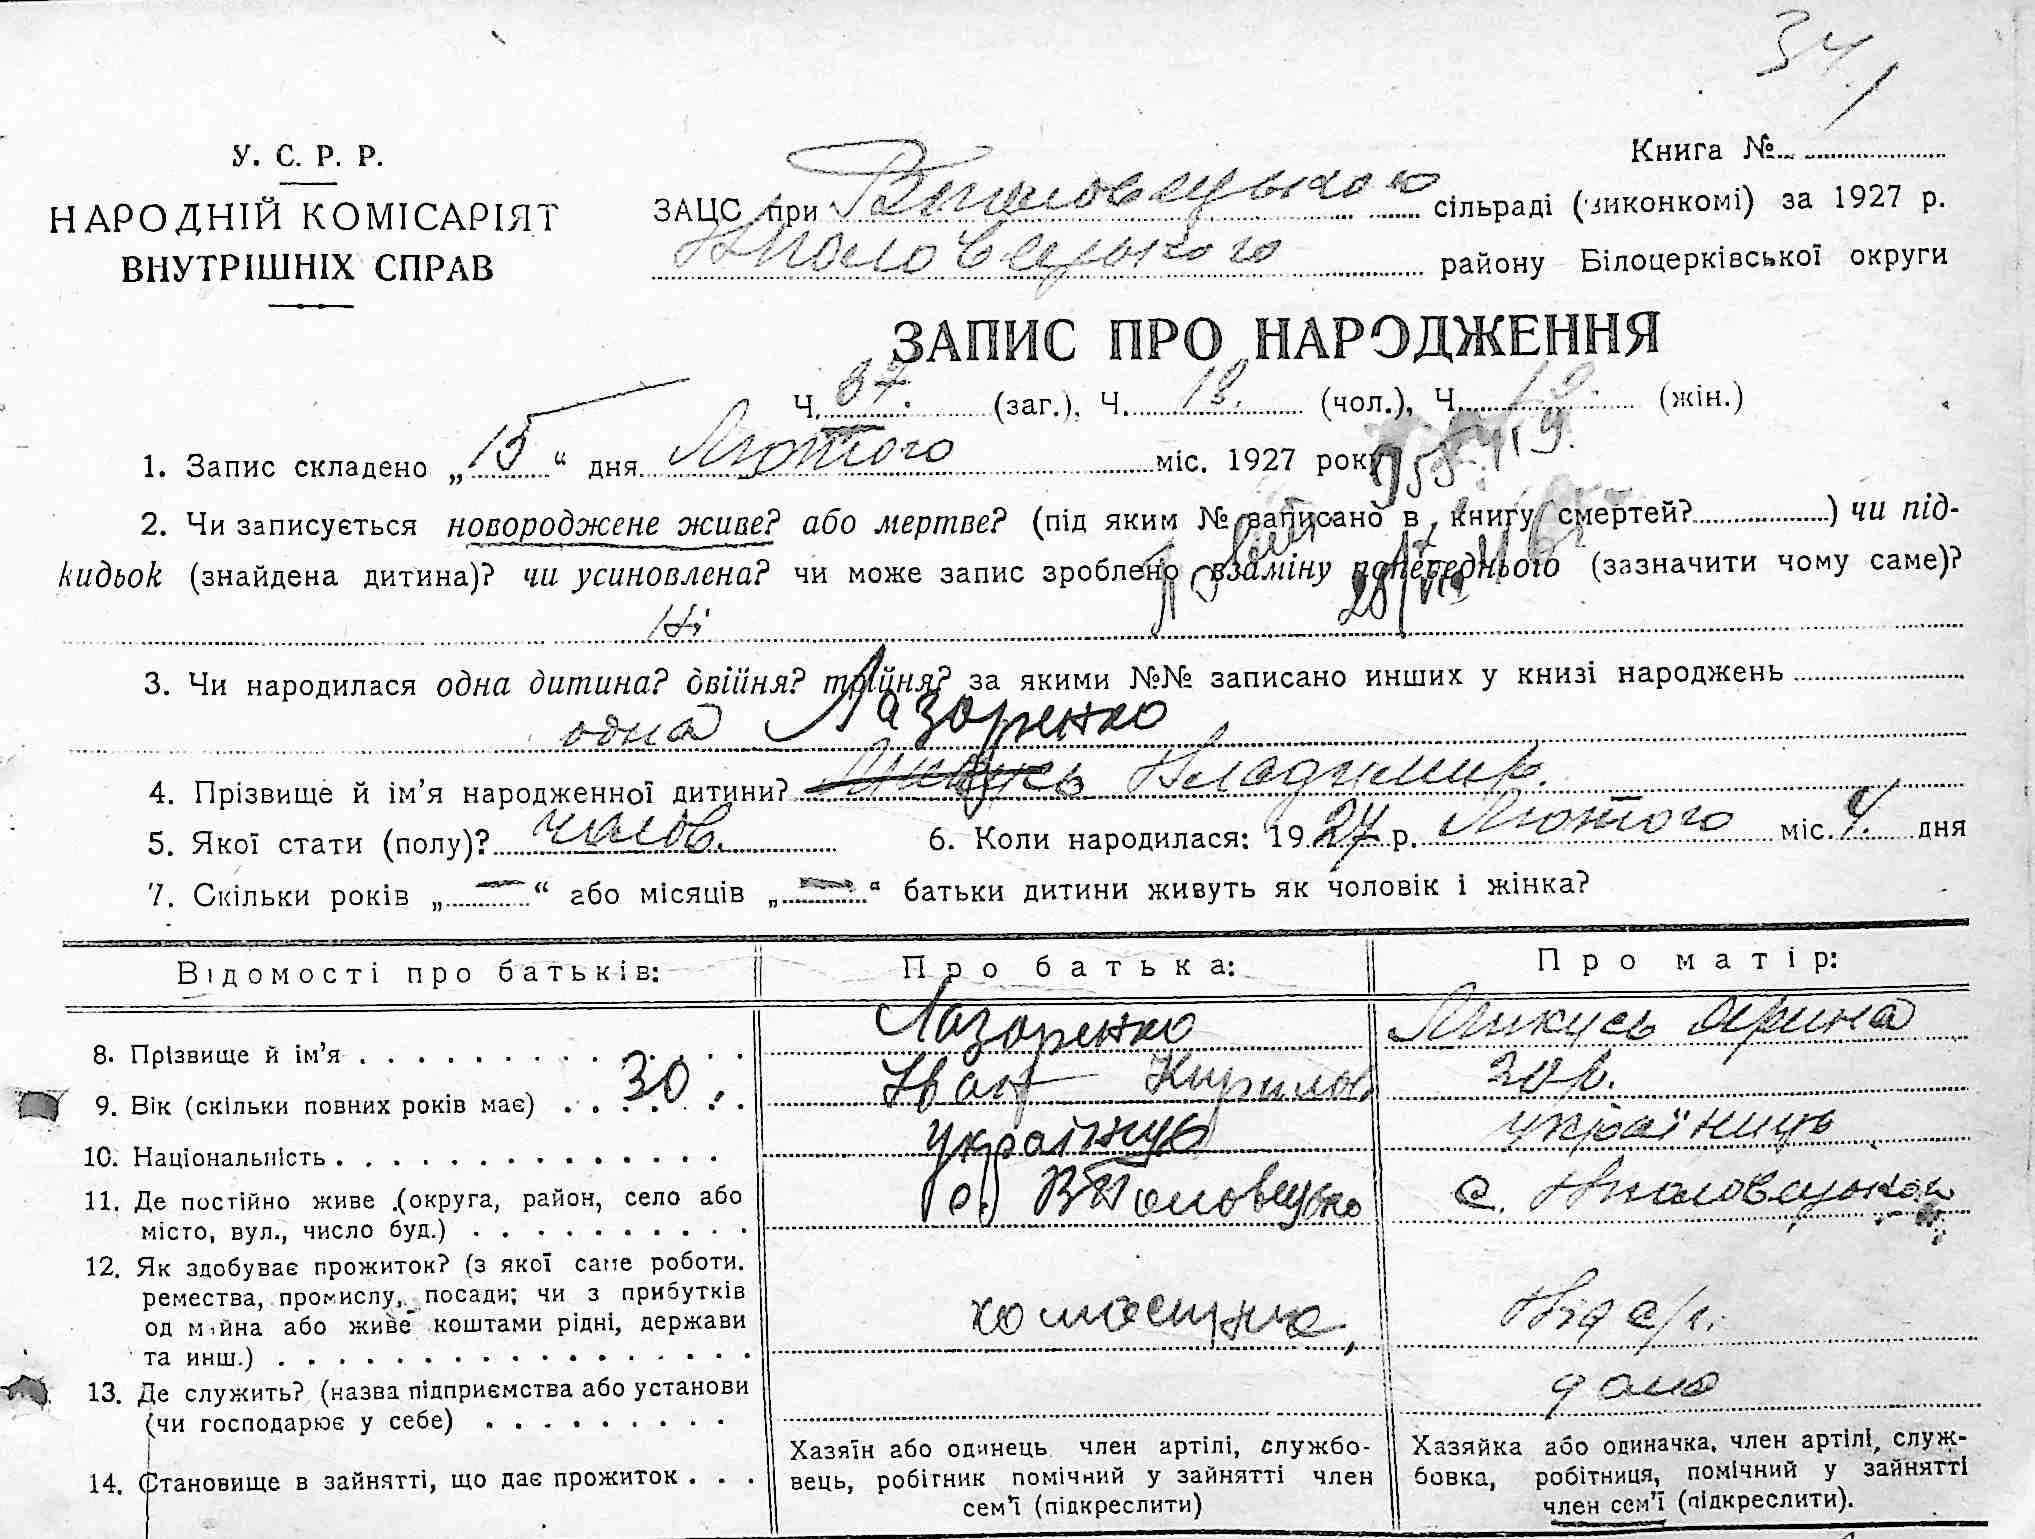 34.
У. С. Р. Р.
НАРОДНІЙ КОМІСАРІЯТ
ВНУТРІШНІХ СПРАВ
Книга №
ЗАЦС при Вполовецькою сільраді (виконкомі) за 1927 р.
Вполовецького району Білоцерківської округи
ЗАПИС ПРО НАРОДЖЕННЯ
Ч. 37. (заг.), Ч. 18. (чол.), Ч. 19. (жін.)
1. Запис складено „15“ дня Лютого міс. 1927 року
2. Чи записується новороджене живе? або мертве? (під яким № записано в книгу смертей? ) чи під-
кидьок (знайдена дитина)? чи усиновлена? чи може запис зроблено взаміну попереднього (зазначити чому саме)?
28/VIII
Ні
3. Чи народилася одна дитина? двійня? трійня? за якими №№ записано инших у книзі народжень
одна Лазоренко
4. Прізвище й ім’я народженної дитини? Микусь Владимир.
5. Якої стати (полу)? чолов. 6. Коли народилася: 1927 р. Лютого міс. 4. дня
7. Скільки років „—“ або місяців „—“ батьки дитини живуть як чоловік і жінка?
Відомості про батьків: Про батька: Про матір:
8. Прізвище й ім’я . . . . . . . . . . . . Лазоренко Микусь Ярина
9. Вік (скільки повних років має) . . . . . . 30 Іван Кирилов 20 р.
10. Національність . . . . . . . . . . . . . . українць україниць
11. Де постійно живе (округа, район, село або
місто, вул., число буд.) . . . . . . . . . . с. ВПоловецько с. Вполовецькой
12. Як здобуває прожиток? (з якої саме роботи.
ремества, промислу, посади; чи з прибутків
од майна або живе коштами рідні, держави
та инш.) . . . . . . . . . . . . . . . . . Від с/г.
13. Де служить? (назва підприємства або установи
(чи господарює у себе) . . . . . . . . . дома
14. Становище в зайнятті, що дає прожиток . . .
Хазяїн або одинець член артілі, службо-
вець, робітник помічний у зайнятті член
сем’ї (підкреслити)
Хазяйка або одиначка, член артілі, служ-
бовка, робітниця, помічний у зайнятті
член сем’ї (підкреслити).